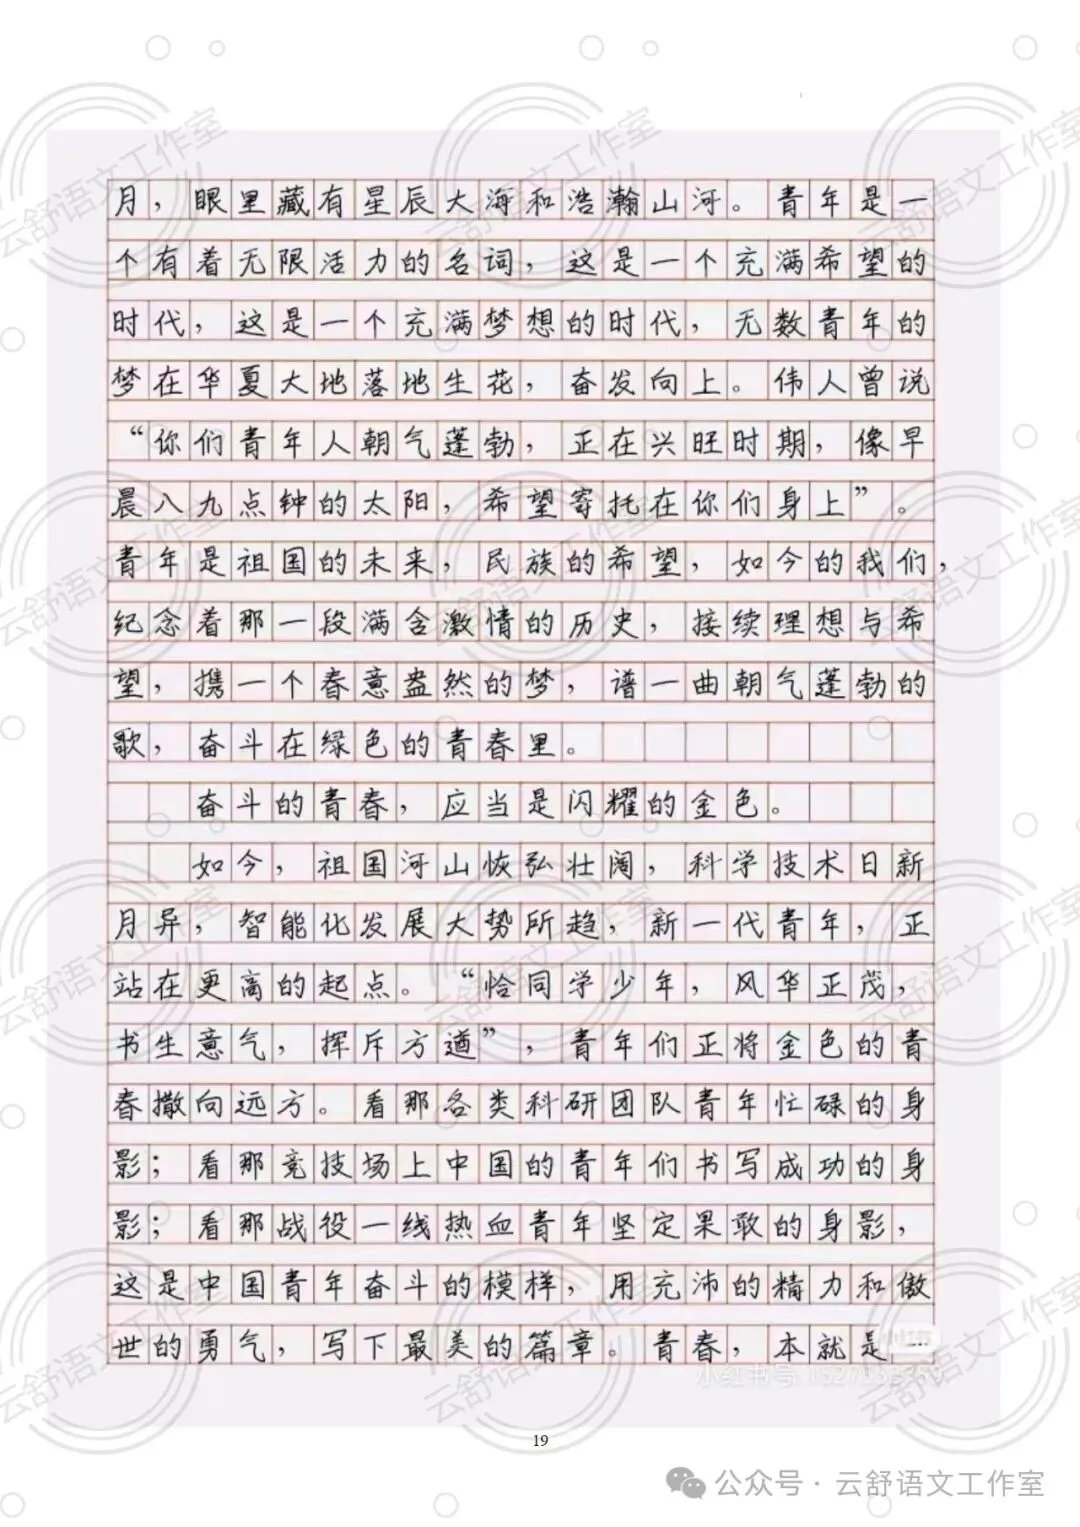 月，眼里藏有星辰大海和浩瀚山河。青年是一
个有着无限活力的名词，这是一个充满希望的
时代，这是一个充满梦想的时代，无数青年的
梦在华夏大地落地生花，奋发向上。伟人曾说
“你们青年人朝气蓬勃，正在兴旺时期，像早
晨八九点钟的太阳，希望寄托在你们身上”。
青年是祖国的未来，民族的希望，如今的我们，
纪念着那一段满含激情的历史，接续理想与希
望，携一个春意盎然的梦，谱一曲朝气蓬勃的
歌，奋斗在绿色的青春里。
奋斗的青春，应当是闪耀的金色。
如今，祖国河山恢弘壮阔，科学技术日新
月异，智能化发展大势所趋，新一代青年，正
站在更高的起点。“恰同学少年，风华正茂，
书生意气，挥斥方遒”，青年们正将金色的青
春撒向远方。看那各类科研团队青年忙碌的身
影；看那竞技场上中国的青年们书写成功的身
影；看那战役一线热血青年坚定果敢的身影，
这是中国青年奋斗的模样，用充沛的精力和傲
世的勇气，写下最美的篇章。青春，本就是一
小红书号:
19
公众号·云舒语文工作室
云舒语文工作室